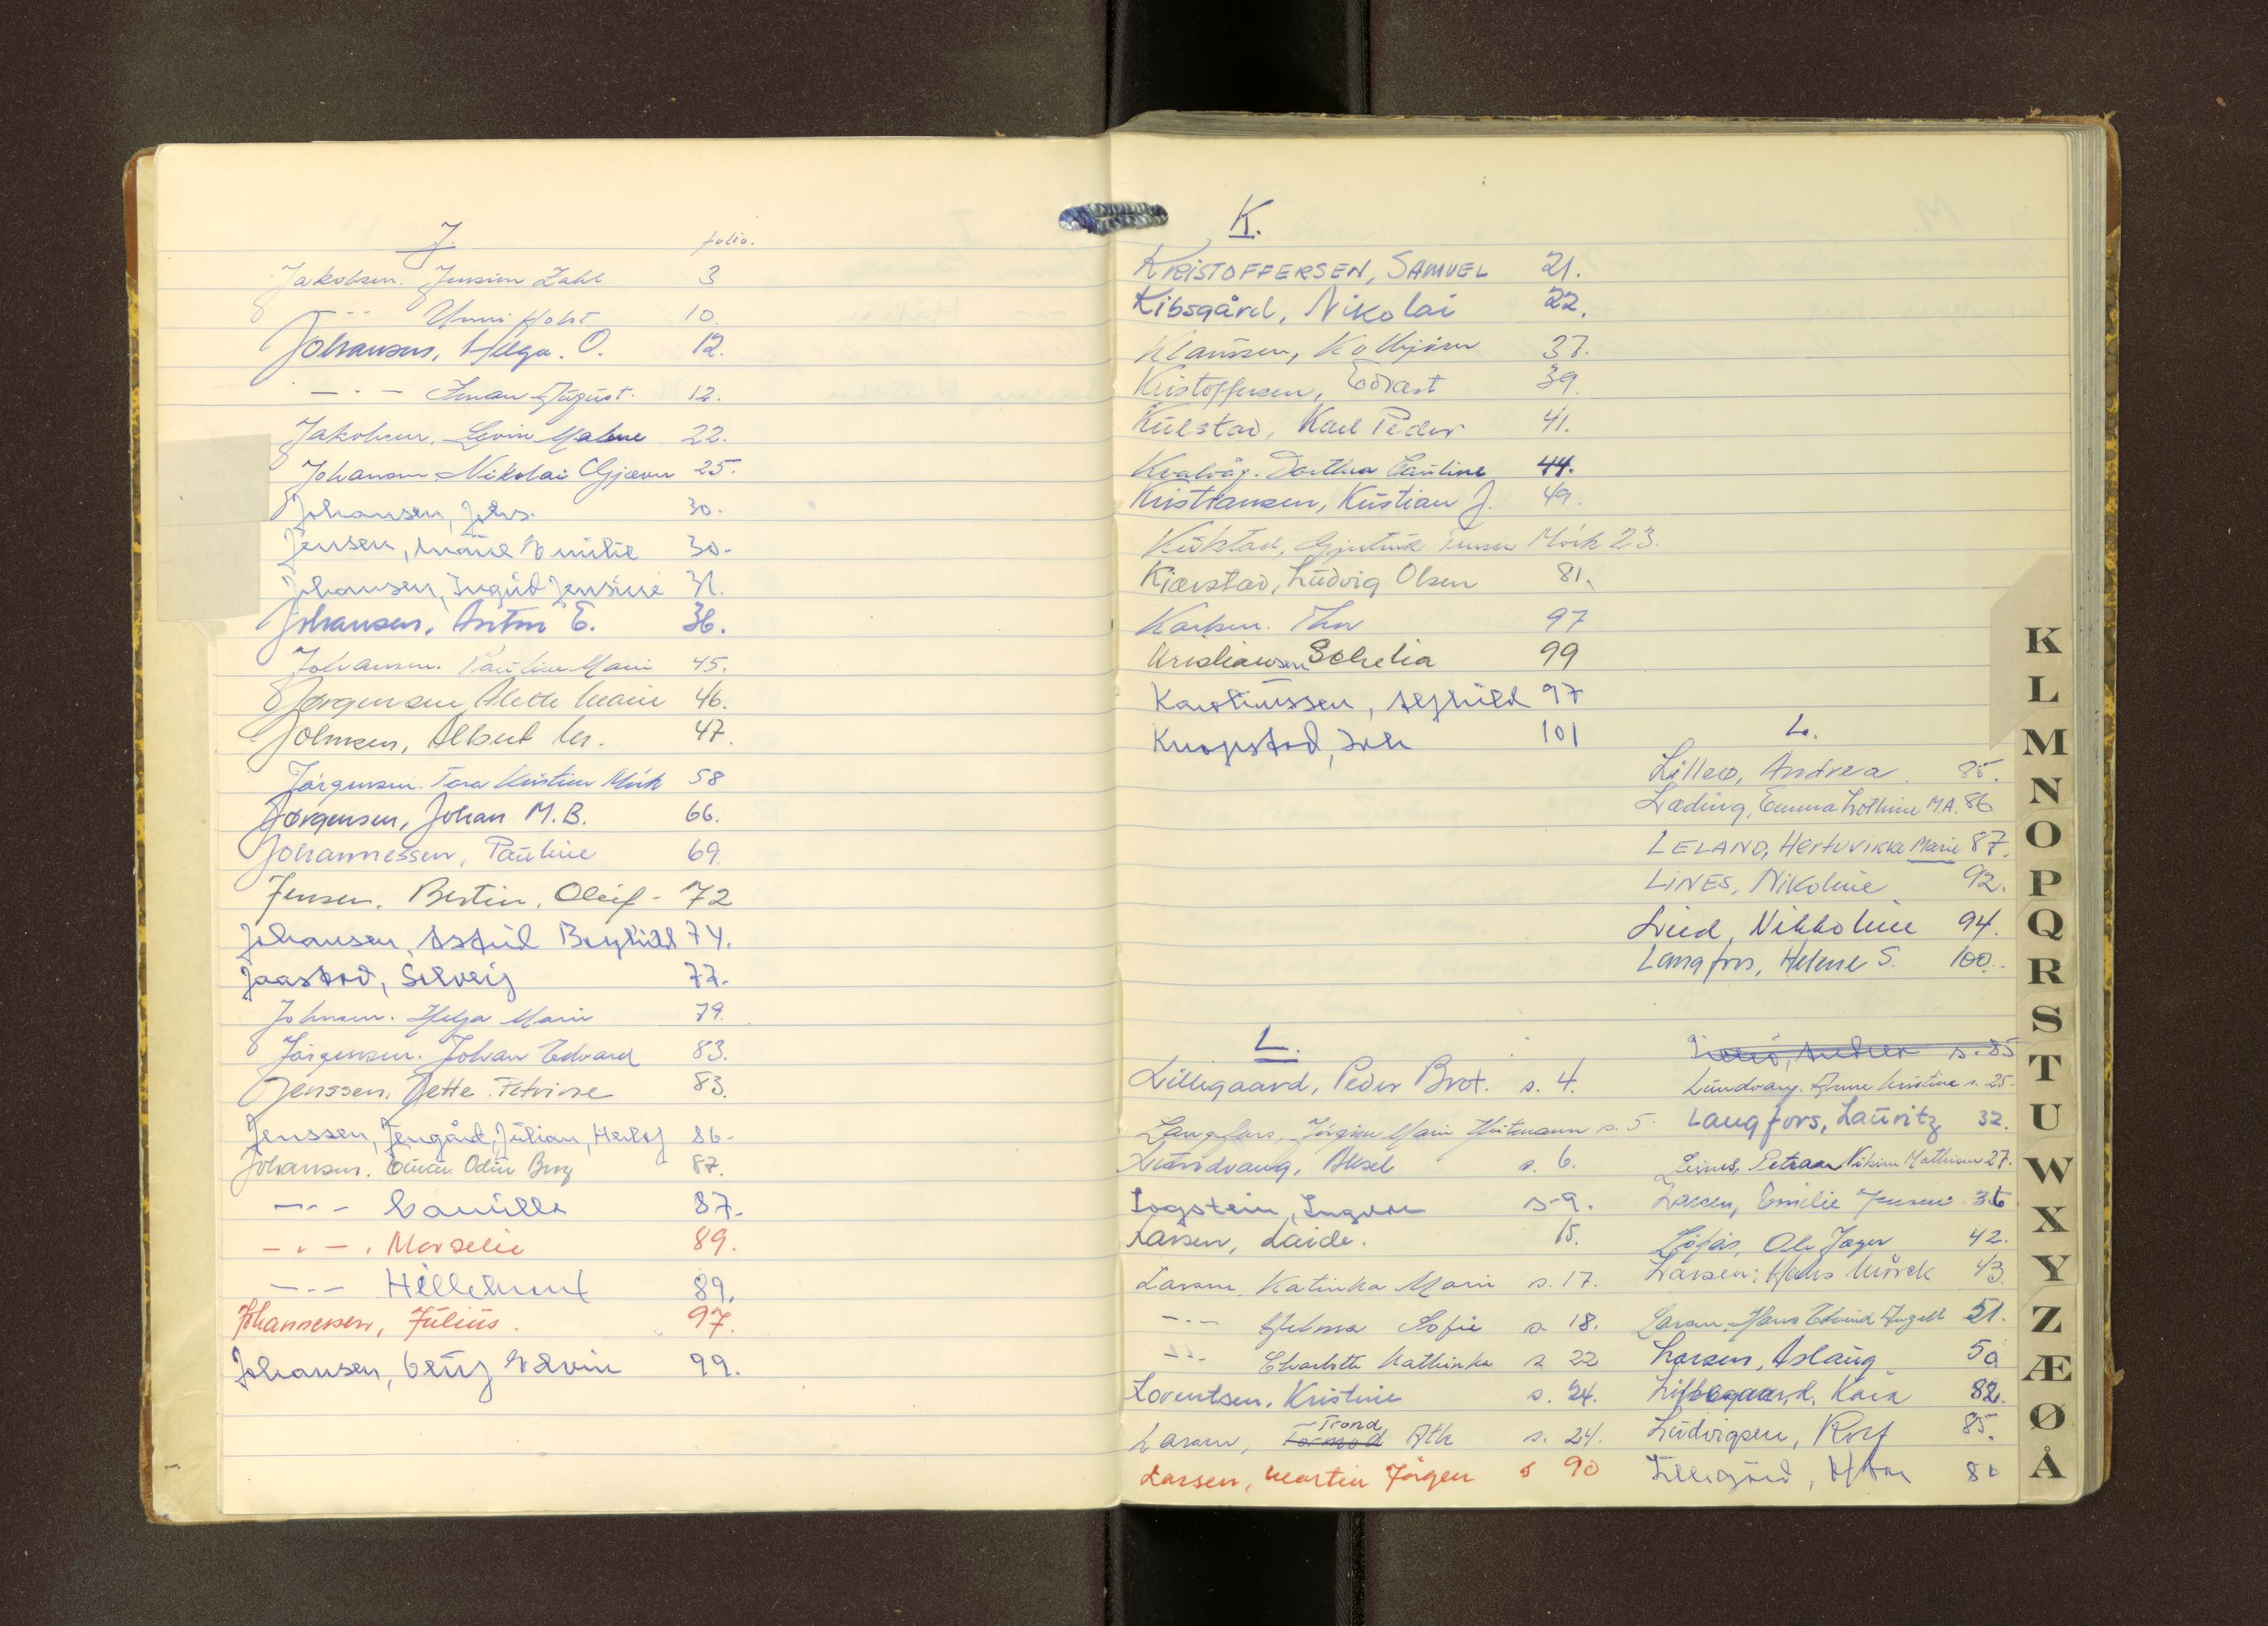 J. folio.
Jakobsen. Jensine Zahl 3
-"- Unni Holst 10.
Johansen, Helga. O. 12.
- " - Einar August. 12.
Jakobsen, Levin Malme 22.
Johansen Nikolai Gjæver 25.
Johansen, Johs. 30.
Jensen, Marie Emilie 30-
Johansen, Ingrid Jensine 31.
Johansen, Anton E. 36.
Johansen. Pauline Marie 45.
Jørgensen, Alette Marie 46.
Johnsen, Albert M. 47.
Jörgensen. Tora Kristine Mörk 58
Jørgensen, Johan M.B. 66.
Johannessen, Pauline 69.
Jensen. Bertin, Oleif - 72
Johansen, Astrid Berghild 74.
Jaastad, Solveig 77.
Johnsen. Helga Marie 79.
Jörgensen. Johan Edvard 83.
Jenssen, Jette Petrine 83.
Jenssen, Jengård, Julian, Herlof 86-
Johansen. Einar Odin Berg 87.
-"- Camilla 87.
-"-, Marselie 89.
-"- Hillebrent 89.
Johannessen, Julius. 97.
Johansen, Edvin 99.
K.
KRISTOFFERSEN, SAMUEL 21.
Kibsgård, Nikolai 22.
Klaussen, Kolbjörn 37.
Kristoffersen, Edvart 39.
Kulstad, Karl Peder 41.
Kvalvåg. Dorthea Pauline 44.
Kristiansen, Kristian J. 49.
Kulstad, Gjertrud Mörk 23.
Kjærstad, Ludvig Olsen 81.
Karlsen. Thor 97
Kristiansen Schelia 99
Karoliussen, Alfhild 97
Knopstad, 101
L.
Lilleø, Andrea. 85.
Læding, Emma Lothine M.A. 86
LELAND, Hertuvikka Marie 87.
LINES, Nikoline 92.
Lied, Nikkoline 94.
Langfors, Helene S. 100.
L.
Lillegaard, Peder Brot. s. 4.
Langfors, Jörgine Marie Hartmann s. 5.
Lundvang, Aksel s. 6.
Logstein, Ingvar s-9.
Larsen, Laide. 15.
Larsen Katinka Marie s. 17.
-"- Helma Sofie s. 18.
-"- Charlotte Kathinka s 22
Loventsen, Kristine s. 24.
Larsen, Tormod Trond Ath s. 24.
Larsen, Martin Jörgen s 90
Lilleö, Andrea s-85
Lundvang. Anne Kristine s. 25.
Langfors, Lauritz 32.
Leines, Petraa Nikine Mathisen 27.
Larsen, Emilie Jensine 36
Löfås, Ole Jager 42.
Larsen: Hans Mörck 43.
Larsen, Hans Edvind Angell 51.
Larsen, Aslaug 50
Lillegaard, Kaia 82.
Ludvigsen, Rolf 85.
Lillegård, 86
K
L
M
N
O
P
Q
R
S
T
U
W
X
Y
Z
Æ
Ø
Å